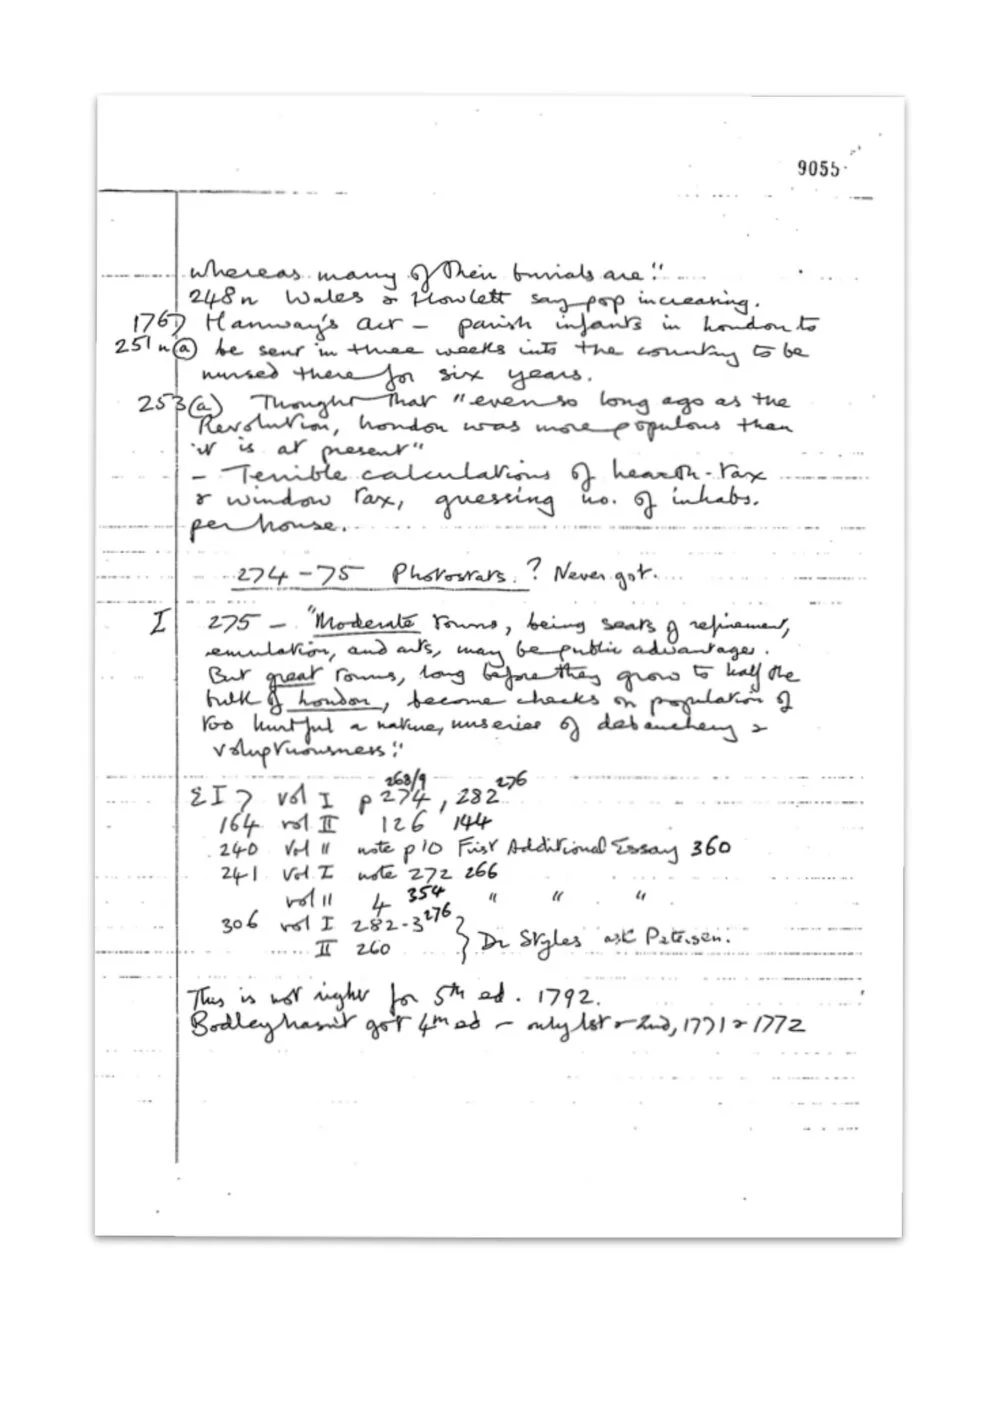 9055
whereas many of their burials are."
248n Wales & Howlett say pop increasing.
1767 Hanway's Act – parish infants in London to
251n(a) be sent in three weeks into the country to be
nursed there for six years.
253(a) Thought that "even so long ago as the
Revolution, London was more populous than
it is at present"
– Terrible calculations of hearth-tax
& window tax, guessing no. of inhabs.
per house.
274–75 Photostats. ? Never got.
I 275 – "Moderate towns, being seats of refinement,
emulation, and arts, may be public advantages.
But great towns, long before they grow to half the
bulk of London, become checks on population of
too hurtful a nature, nurseries of debauchery &
voluptuousness."
268/9 276
ΣI7 vol I p 274, 282
164 vol II 126 144
240 Vol II note p 10 First Additional Essay 360
241 Vol I note 272 266
vol II 4 354 " " "
306 vol I 282-3 276
II 260 } Dr Styles ask Petersen.
This is not right for 5th ed. 1792.
Bodley hasn't got 4th ed – only 1st & 2nd, 1771 & 1772